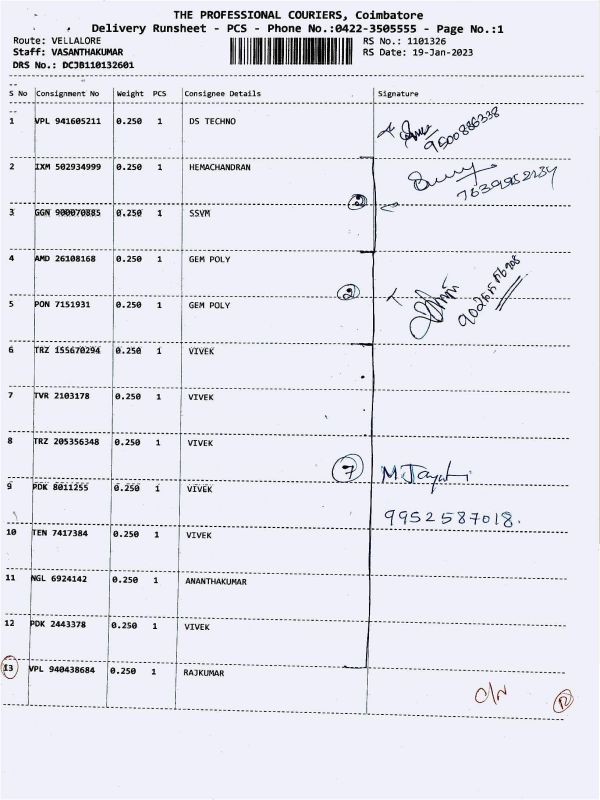 THE PROFESSIONAL COURIERS, Coimbatore
Delivery Runsheet - PCS - Phone No.:0422-3505555 - Page No.:1
Route: VELLALORE RS No.: 1101326
Staff: VASANTHAKUMAR RS Date: 19-Jan-2023
DRS No.: DCJB110132601
S No Consignment No Weight PCS Consignee Details Signature
1 VPL 941605211 0.250 1 DS TECHNO
9500886338
2 IXM 502934999 0.250 1 HEMACHANDRAN
2
3 GGN 900070885 0.250 1 SSVM
4 AMD 26108168 0.250 1 GEM POLY
2
5 PON 7151931 0.250 1 GEM POLY
6 TRZ 155670294 0.250 1 VIVEK
7 TVR 2103178 0.250 1 VIVEK
8 TRZ 205356348 0.250 1 VIVEK
7
9 PDK 8011255 0.250 1 VIVEK
9952587018.
10 TEN 7417384 0.250 1 VIVEK
11 NGL 6924142 0.250 1 ANANTHAKUMAR
12 PDK 2443378 0.250 1 VIVEK
13 VPL 940438684 0.250 1 RAJKUMAR
O/N
12